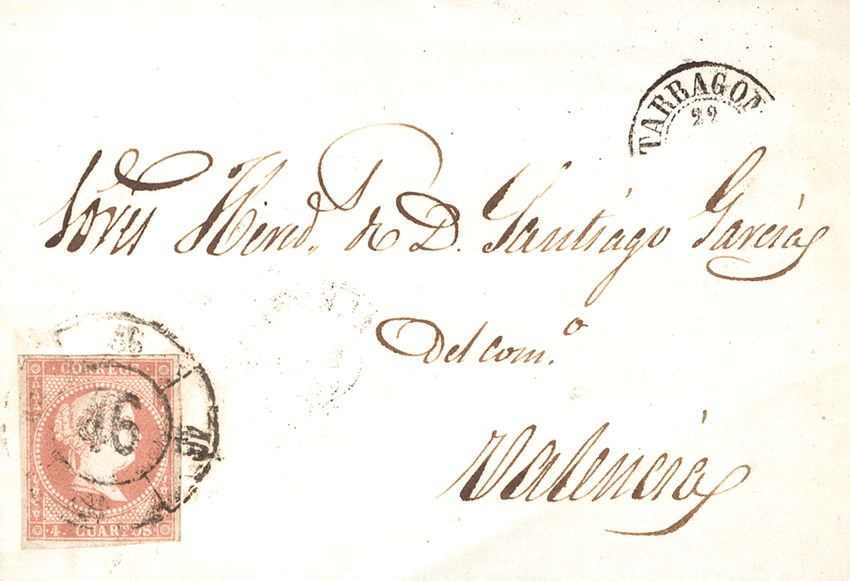 TARRAGON
22
Sres Hered.s de D. Santiago Garcia
Del com.o
Valencia
46
CORREOS
46
4. CUARTOS